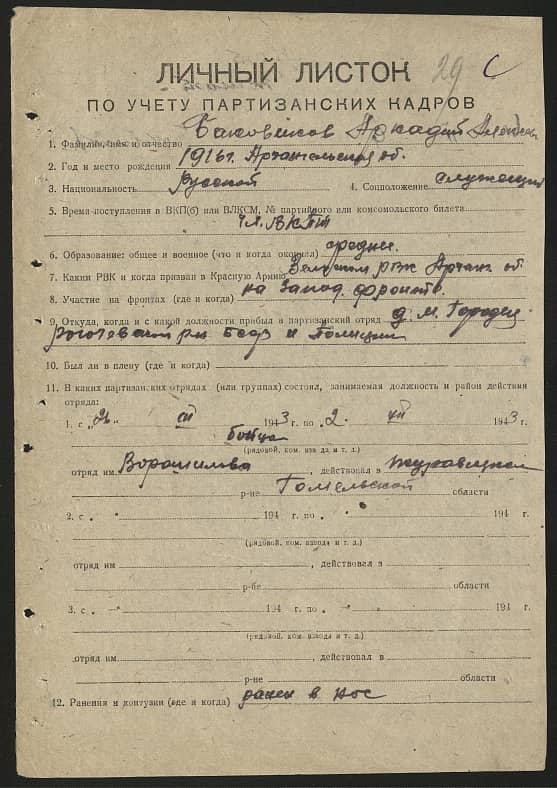 29 С
ЛИЧНЫЙ ЛИСТОК
ПО УЧЕТУ ПАРТИЗАНСКИХ КАДРОВ
1. Фамилия, имя и отчество Баковиков Аркадий
2. Год и место рождения 1916 г. Архангельская об.
3. Национальность Русской 4. Соцположение служащий
5. Время поступления в ВКП(б) или ВЛКСМ, № партийного или комсомольского билета
чл. ВКП
6. Образование: общее и военное (что и когда окончил) среднее.
7. Каким РВК и когда призван в Красную Армию РВК Арханг. об.
8. Участие на фронтах (где и когда) на Запад. фронте.
9. Откуда, когда и с какой должности прибыл в партизанский отряд д. м. Городец
р-н БССР и Полиции
10. Был ли в плену (где и когда)
11. В каких партизанских отрядах (или группах) состоял, занимаемая должность и район действия
отряда:
1. с „26“ III 1943 г. по „2“ VII 1943 г.
бойца
(рядовой, ком. взвода и т. д.)
отряд им. Ворошилова, действовал в Журавицком
р-не Гомельской области
2. с „ “ 194 г. по „ “ 194 г.
(рядовой, ком. взвода и т. д.)
отряд им , действовал в
р-не области
3. с „ “ 194 г. по „ “ 194 г.
(рядовой, ком. взвода и т. д.)
отряд им. , действовал в
р-не области
12. Ранения и контузии (где и когда) ранен в нос